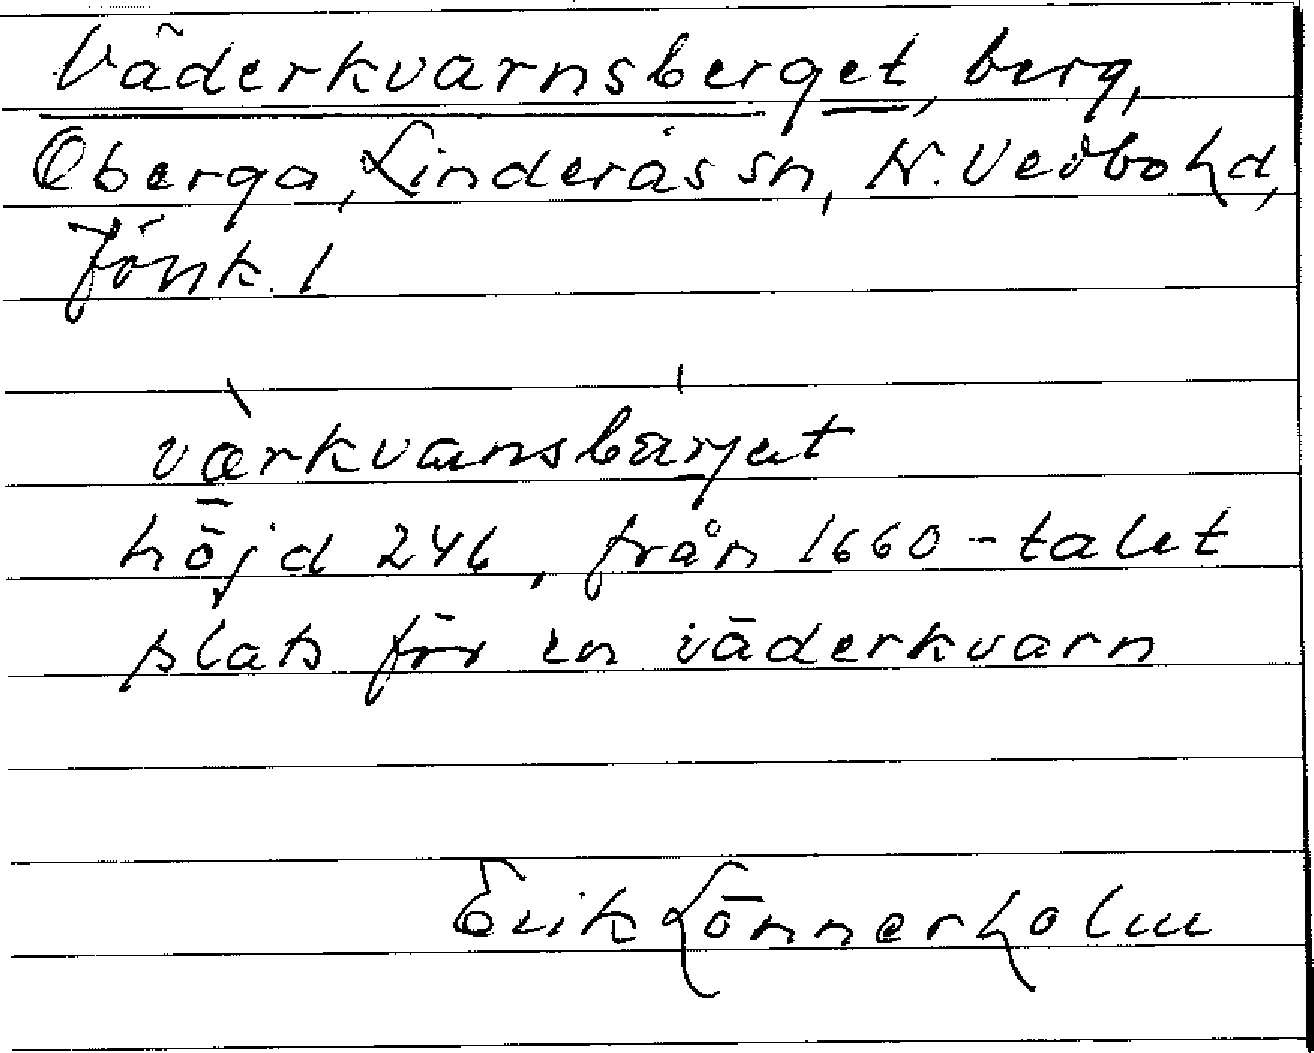 Väderkvarnsberget, berg,
Oberga, Linderås sn, N. Vedbo hd,
Jönk. l
värkvansbärjet
höjd 246, från 1660-talet
plats för en väderkvarn
Erik Lönnerholm